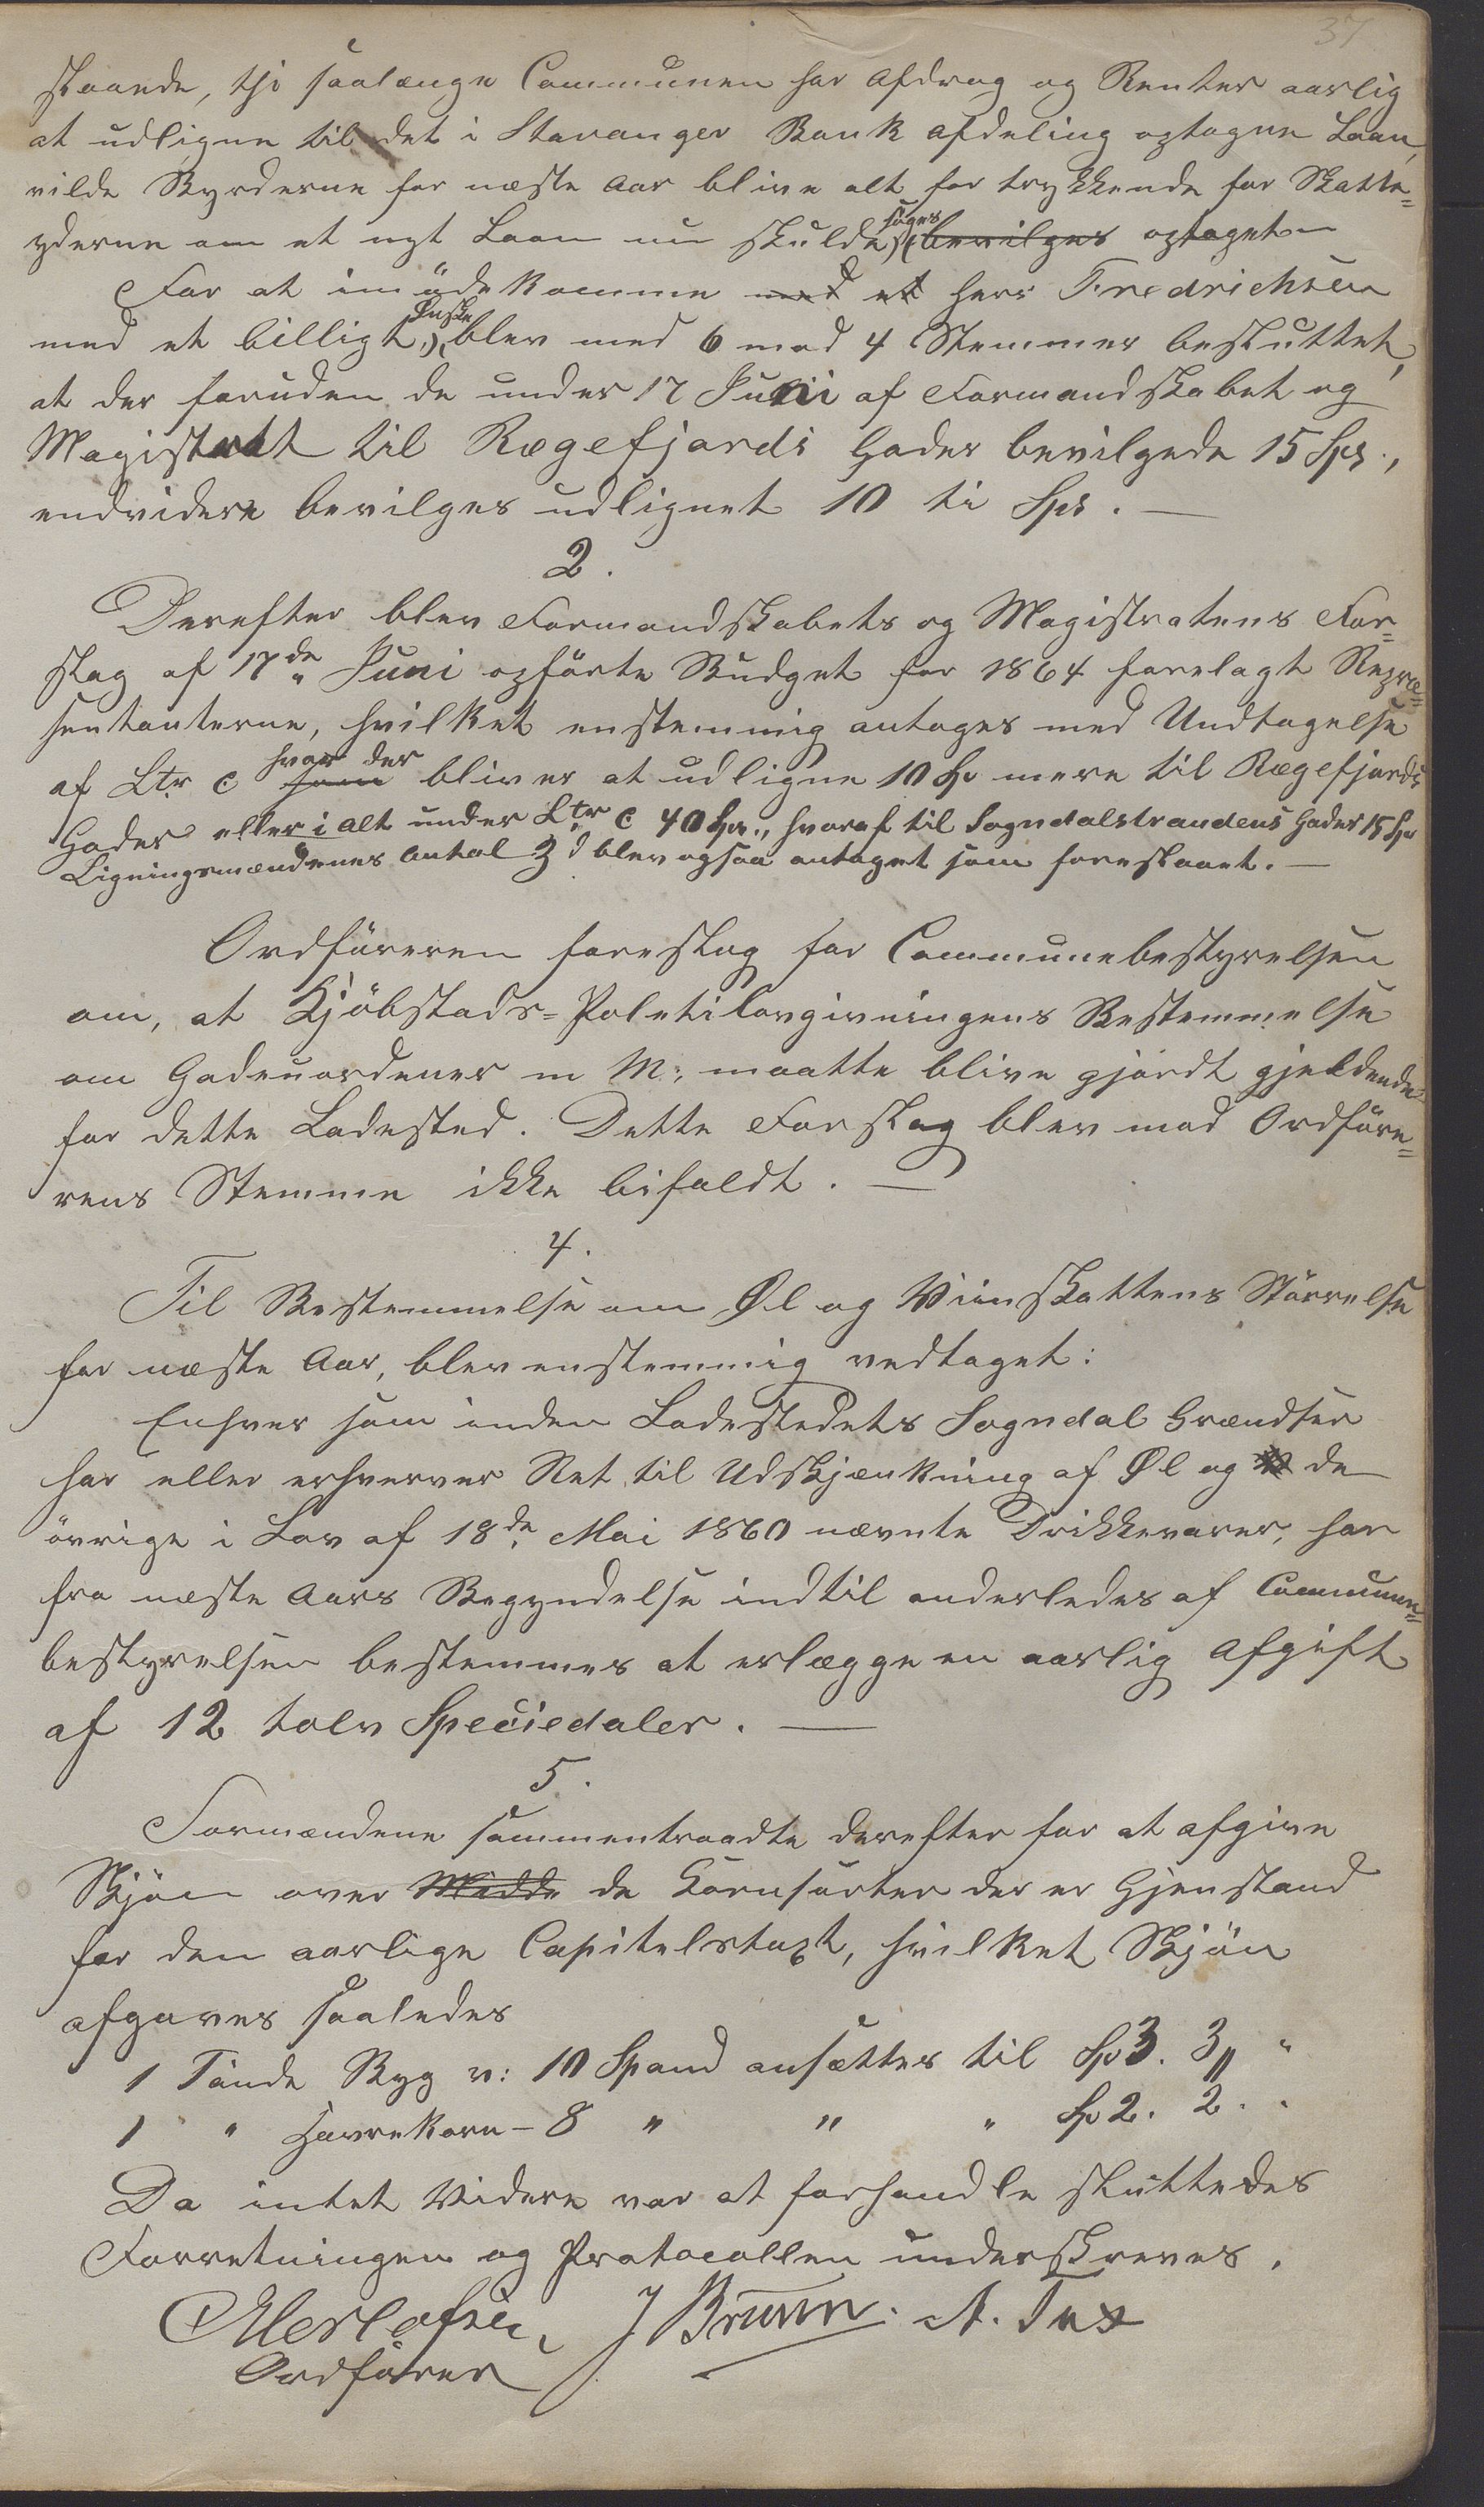 37
staaende, thi saalænge Communen har Afdrag og Renter aarlig
at udligne til det i Stavanger Bank Afdeling optagne Laan,
vilde Byrderne for næste Aar blive alt for trykkende for Skatte=
yderne om et nyt Laan nu skulde søges bevilges optaget
For at imödekomme med et herr Fredrichsen
med et billigt Ønske, blev med 6 mod 4 Stemmer besluttet,
at der foruden de under 17 Juni af Formandskabet og
Magistratt til Rægefjords Gader bevilgede 15 Spd.,
endvidere bevilges udlignet 10 ti Spd. —
2.
Derefter blev Formandskabets og Magistratens For=
slag af 17de Juni opförte Budget for 1864 forelagt Repræ=
sentanterne, hvilket enstemmig antages med Undtagelse
af Ltr c som hvor der bliver at udligne 10 Sp mere til Rægefjords
Gader eller i alt under Ltr c 40 Spd., hvoraf til Sogndalstrandens Gader 15 Spd
Ligningsmændenes Antal 3 blev ogsaa antaget som foreslaaet. —
Ordföreren foreslog for Communebestyrelsen
om, at Kjöbstads=Politilovgivningens Bestemmelse
om Gadeuordener m M: maatte blive gjördt gjeldende
for dette Ladested. Dette Forslag blev mod Ordföre=
rens Stemme ikke bifaldt. —
4.
Til Bestemmelse om Øl og Viinskattens Störrelse
for næste Aar, blev enstemmig vedtaget:
Enhver som inden Ladestedets Sogndal Grændser
har eller erhverver Ret til Udskjænkning af Øl og de
övrige i Lov af 18de Mai 1860 nævnte Drikkevarer, har
fra næste Aars Begyndelse indtil anderledes af Commune=
bestyrelsen bestemmes at erlægge en aarlig Afgift
af 12 tolv Speciedaler. —
5.
Formændene sammentraadte derefter for at afgive
Skjön over Midde de Kornsorter der er Gjenstand
for den aarlige Capitelstaxt, hvilket Skjön
afgaves saaledes
1 Tönde Byg v: 10 Spand ansættes til Sp 3. 3 „ "
1 " Havrekorn – 8 " " " Sp 2. 2. .
Da intet Videre var at forhandle sluttedes
Forretningen og Protocollen underskreves.
J Brunn. A.
Ordförer